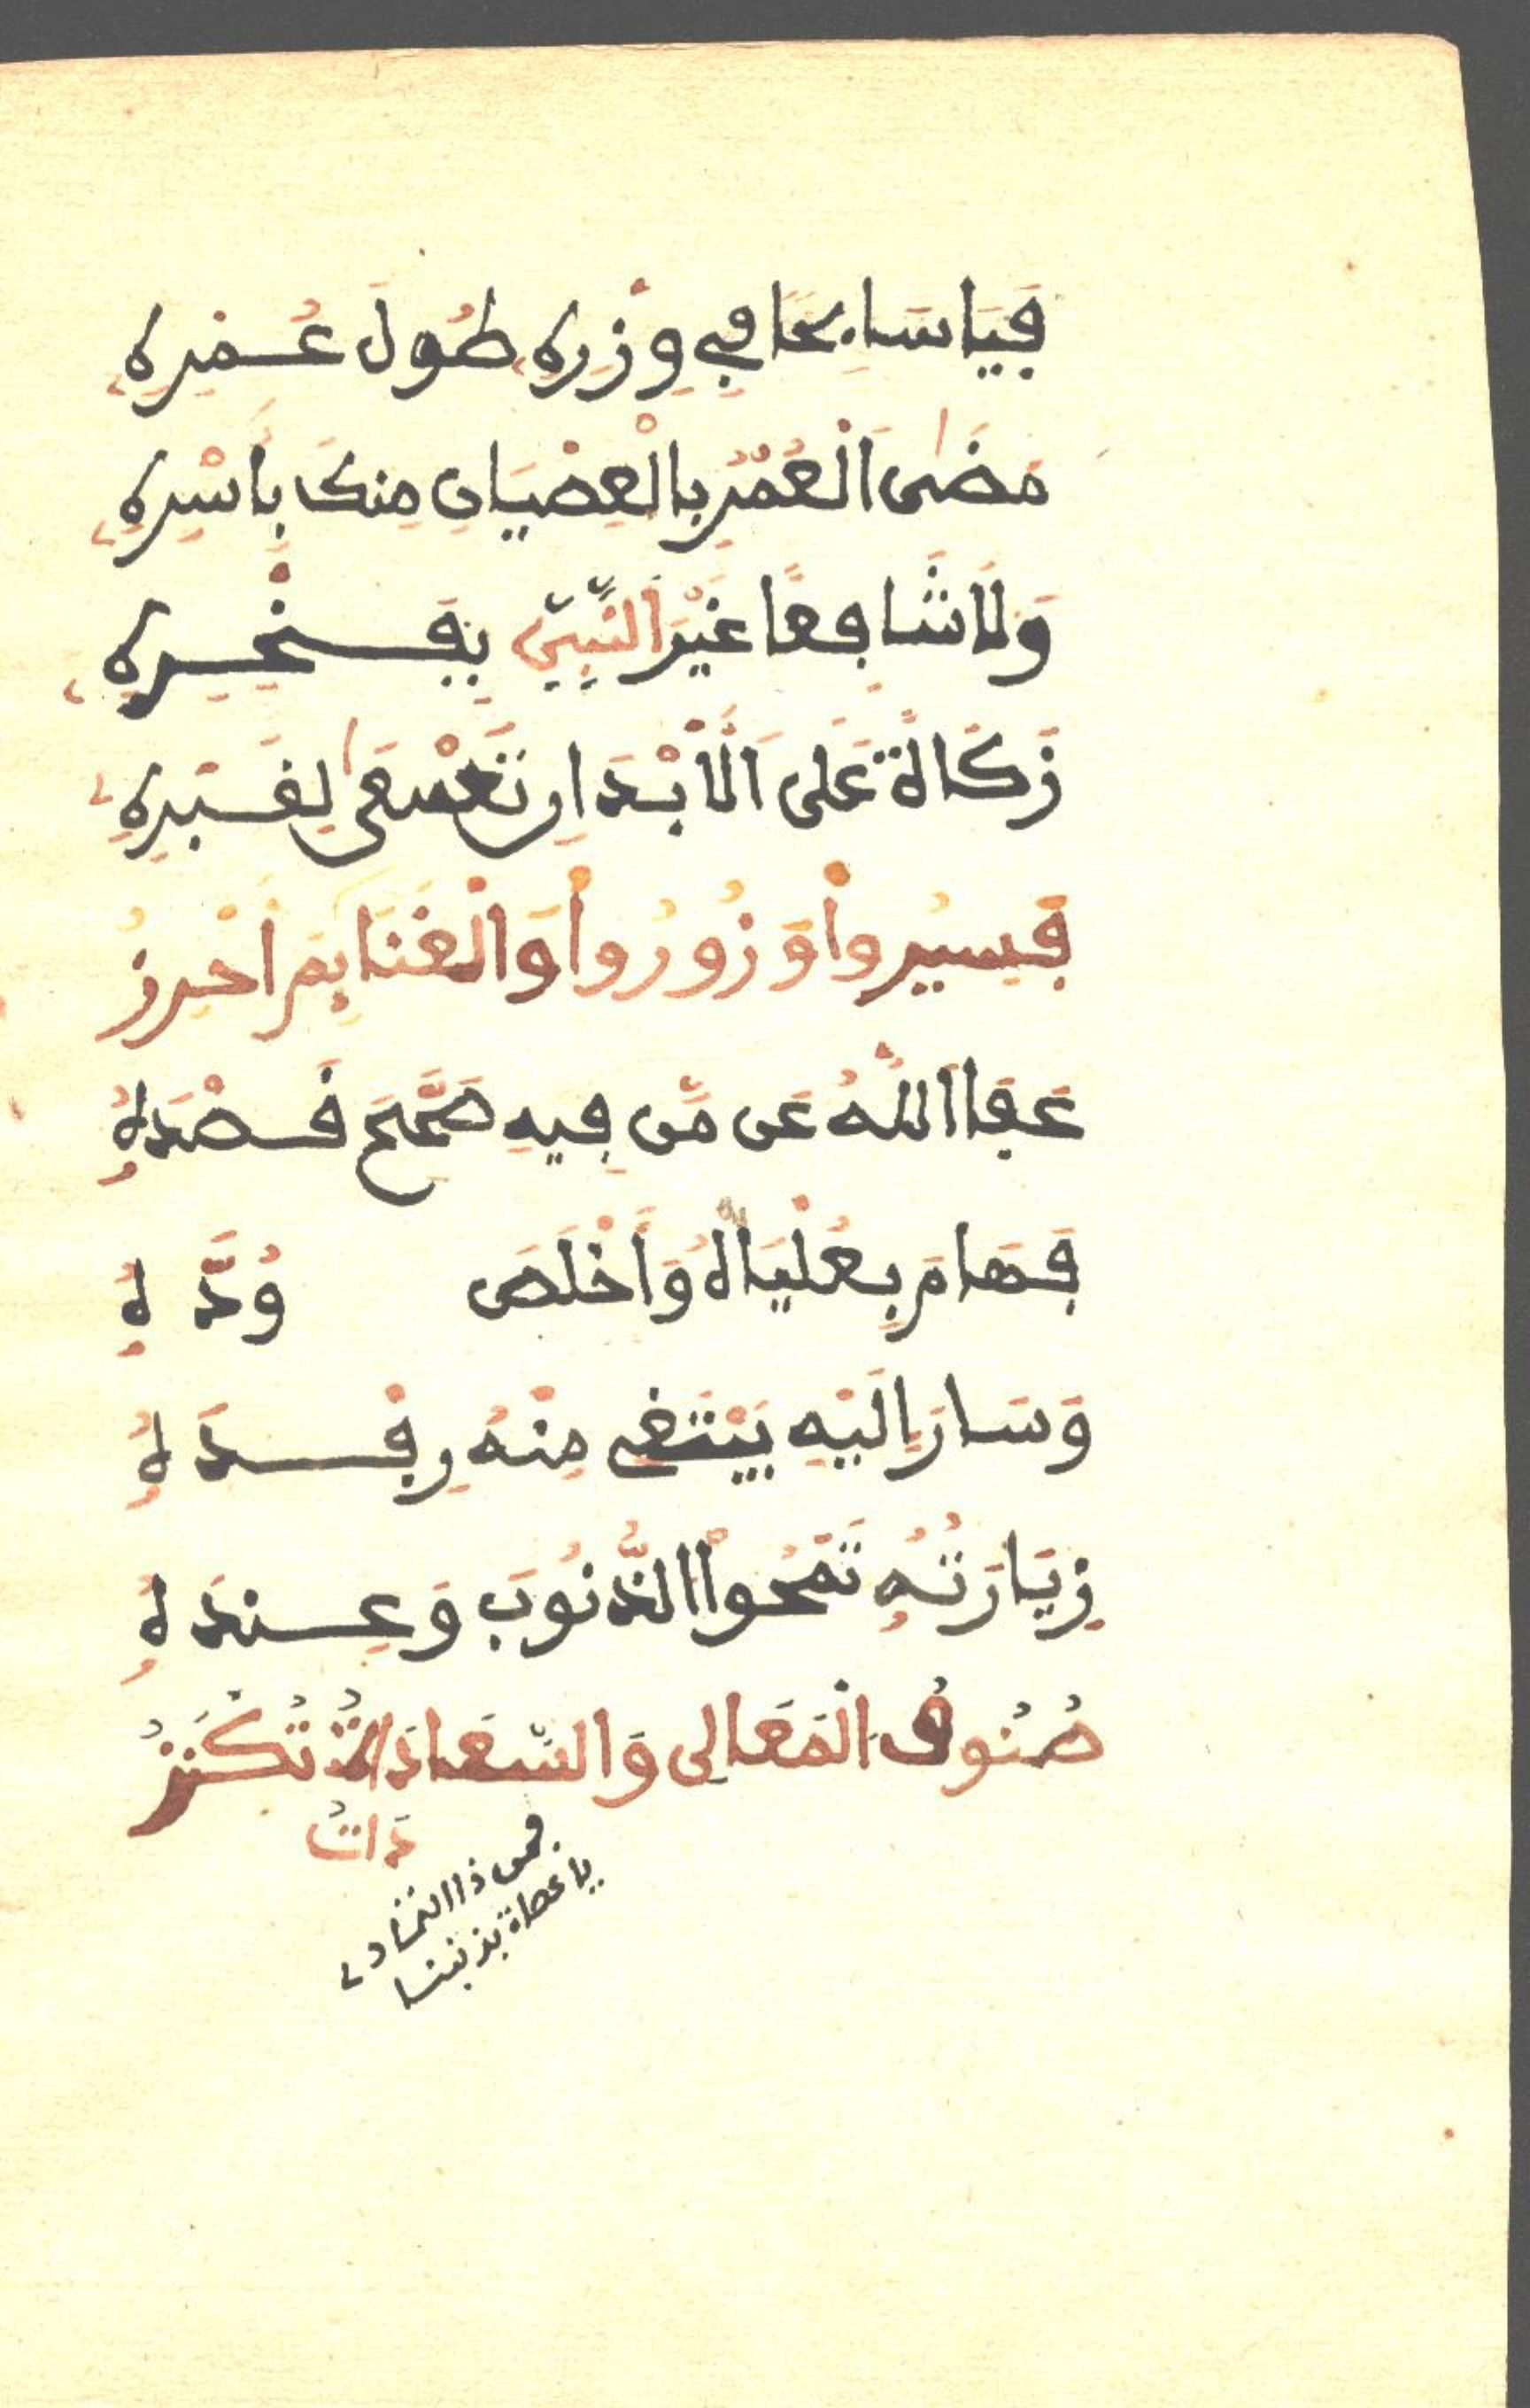 فَيَا سَابِحًا فِي وِزْرِهِ طُولَ عُمْرِهِ
مَضَى الْعُمْرُ بِالْعِصْيَانِ مِنكَ بِأَسْرِهِ
وَلَا شَافِعًا غَيْرَ النَّبِيِّ بِفَخْرِهِ
زَكَاةٌ عَلَى الْأَبْدَانِ تَسْعَى لِقَبْرِهِ
فَسِيرُواْ وَزُورُواْ وَالْغَنَائِمَ أَحْرِزُ
عَفَا اللَّهُ عَن مَّن فِيهِ صَحَّحَ قَصْدَهُ
فَهَامَ بِعُلْيَاهُ وَأَخْلَصَ وُدَّهُ
وَسَارَ إِلَيْهِ يَبْتَغِي مِنْهُ رِفْدَهُ
زِيَارَتُهُ تَمْحُواْ الذُّنُوبَ وَعِندَهُ
صُنُوفُ الْمَعَالِى وَالسَّعَادَةُ تُكْنَزُ
دَاتُ
فمن ذا التمادِ
يا عصاة بذنبنا